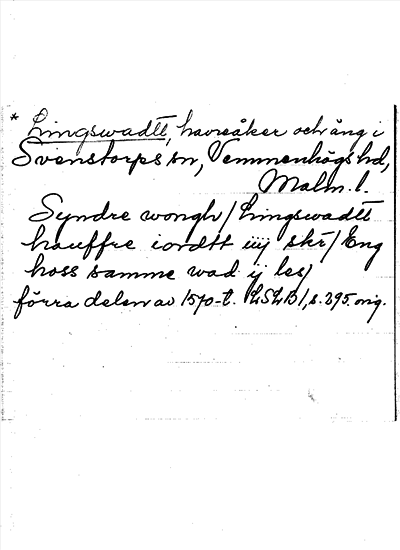 * Lingswadtt, havreåker och äng i
Svenstorps sn, Vemmenhögs hd,
Malm. l.
Syndre wongh / Lingswadtt
hauffre iordtt iiij skr / Eng
hoss samme wad ij les /
förra delen av 1570-t. LSLB 1, s. 295. orig.